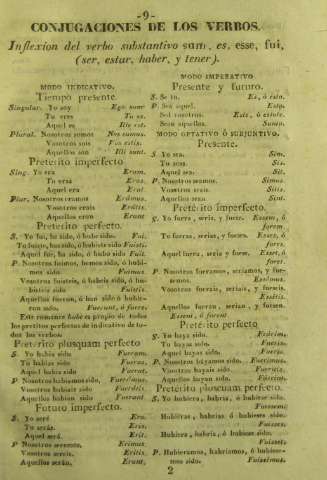 -9-
CONJUGACIONES DE LOS VERBOS.
Inflexion del verbo substantivo sum, es, esse, fui,
(ser, estar, haber, y tener).
MODO INDICATIVO.
Tiempo presente.
Singular. Yo soy Ego sum
Tu eres Tu es.
Aquel es Ille est.
Plural. Nosotros somos Nos sumus.
Vosotros sois Vos estis.
Aquellos son Illi sunt.
Preterito imperfecto
Sing. Yo era Eram.
Tu eras Eras.
Aquel era Erat.
Plur. Nosotros eramos Erámus.
Vosotros erais Erátis.
Aquellos eran Erant
Preterito perfecto.
S. Yo fui, he sido, ó hube sido. Fui.
Tu fuiste, has sido, ó hubiste sido Fuisti.
Aquel fue, ha sido, ó hubo sido Fuit.
P. Nosotros fuimos, hemos sido, ó hubimos
sido. Fuimus.
Vosotros fuisteis, ó habeis sido, ó hubisteis
sido Fuistis.
Aquellos fueron, ó han sido ó hubieron
sido. Fuerunt, ó fuere.
Este romance hube es propio de todos
los pretéritos perfectos de indicativo de todos
los verbos.
Preterito plusquam perfecto
S. Yo habia sido Fueram.
Tu habias sido Fueras.
Aquel habia sido Fuerat.
P. Nosotros habiamos sido, Fuerámus.
Vosotros habiais sido Fuerátis.
Aquellos habian sido Fuerant.
Futuro imperfecto.
S. Yo seré Ero.
Tu serás Eris.
Aquel será Erit.
P Nosotros seremos, Erimus.
Vosotros sereis, Eritis.
Aquellos serán, Erunt,
MODO IMPERATIVO
Presente y futuro.
S. Se tu. Es, ó esto.
P. Sea aquel. Esto.
Sed vosotros. Este, ó estote.
Sean aquellos. Sunto.
MODO OPTATIVO ó SUBJUNTIVO.
Presente.
S. Yo sea. Sim.
Tu seas. Sis.
Aquel sea. Sit.
P. Nosotros seamos. Simus.
Vosotros seais. Sitis.
Aquellos sean. Sint.
Preterito imperfecto.
S. Yo fuera, seria, y fuese. Essem, ó
forem.
Tu fueras, serias, y fueses. Esses, ó
fores.
Aquel fuera, seria y fuese. Esset, ó
foret.
P. Nosotros fueramos, seriamos, y fuesemos.
Essémus.
Vosotros fuerais, seriais, y fueseis.
Essétis.
Aquellos fueran, serian, y fuesen.
Essent, ó forent
Preterito perfecto
S. Yo haya sido. Fuerim.
Tu hayas sido. Fueris.
Aquel haya sido. Fuerit.
P. Nosotros hayamos sido. Fuerimus.
Vosotros hayais sido. Fueritis.
Aquellos hayan sido. Fuerint.
Preterito plusquam perfecto.
S. Yo hubiera, habria, ó hubiese sido.
Fuissem.
Hubieras, habrias ó hubieses sido.
Fuisses.
Hubiera, habria, ó hubiese sido.
Fuisset.
P. Hubieramos, habriamos, ó hubiesemos
sido. Fuissémus.
2